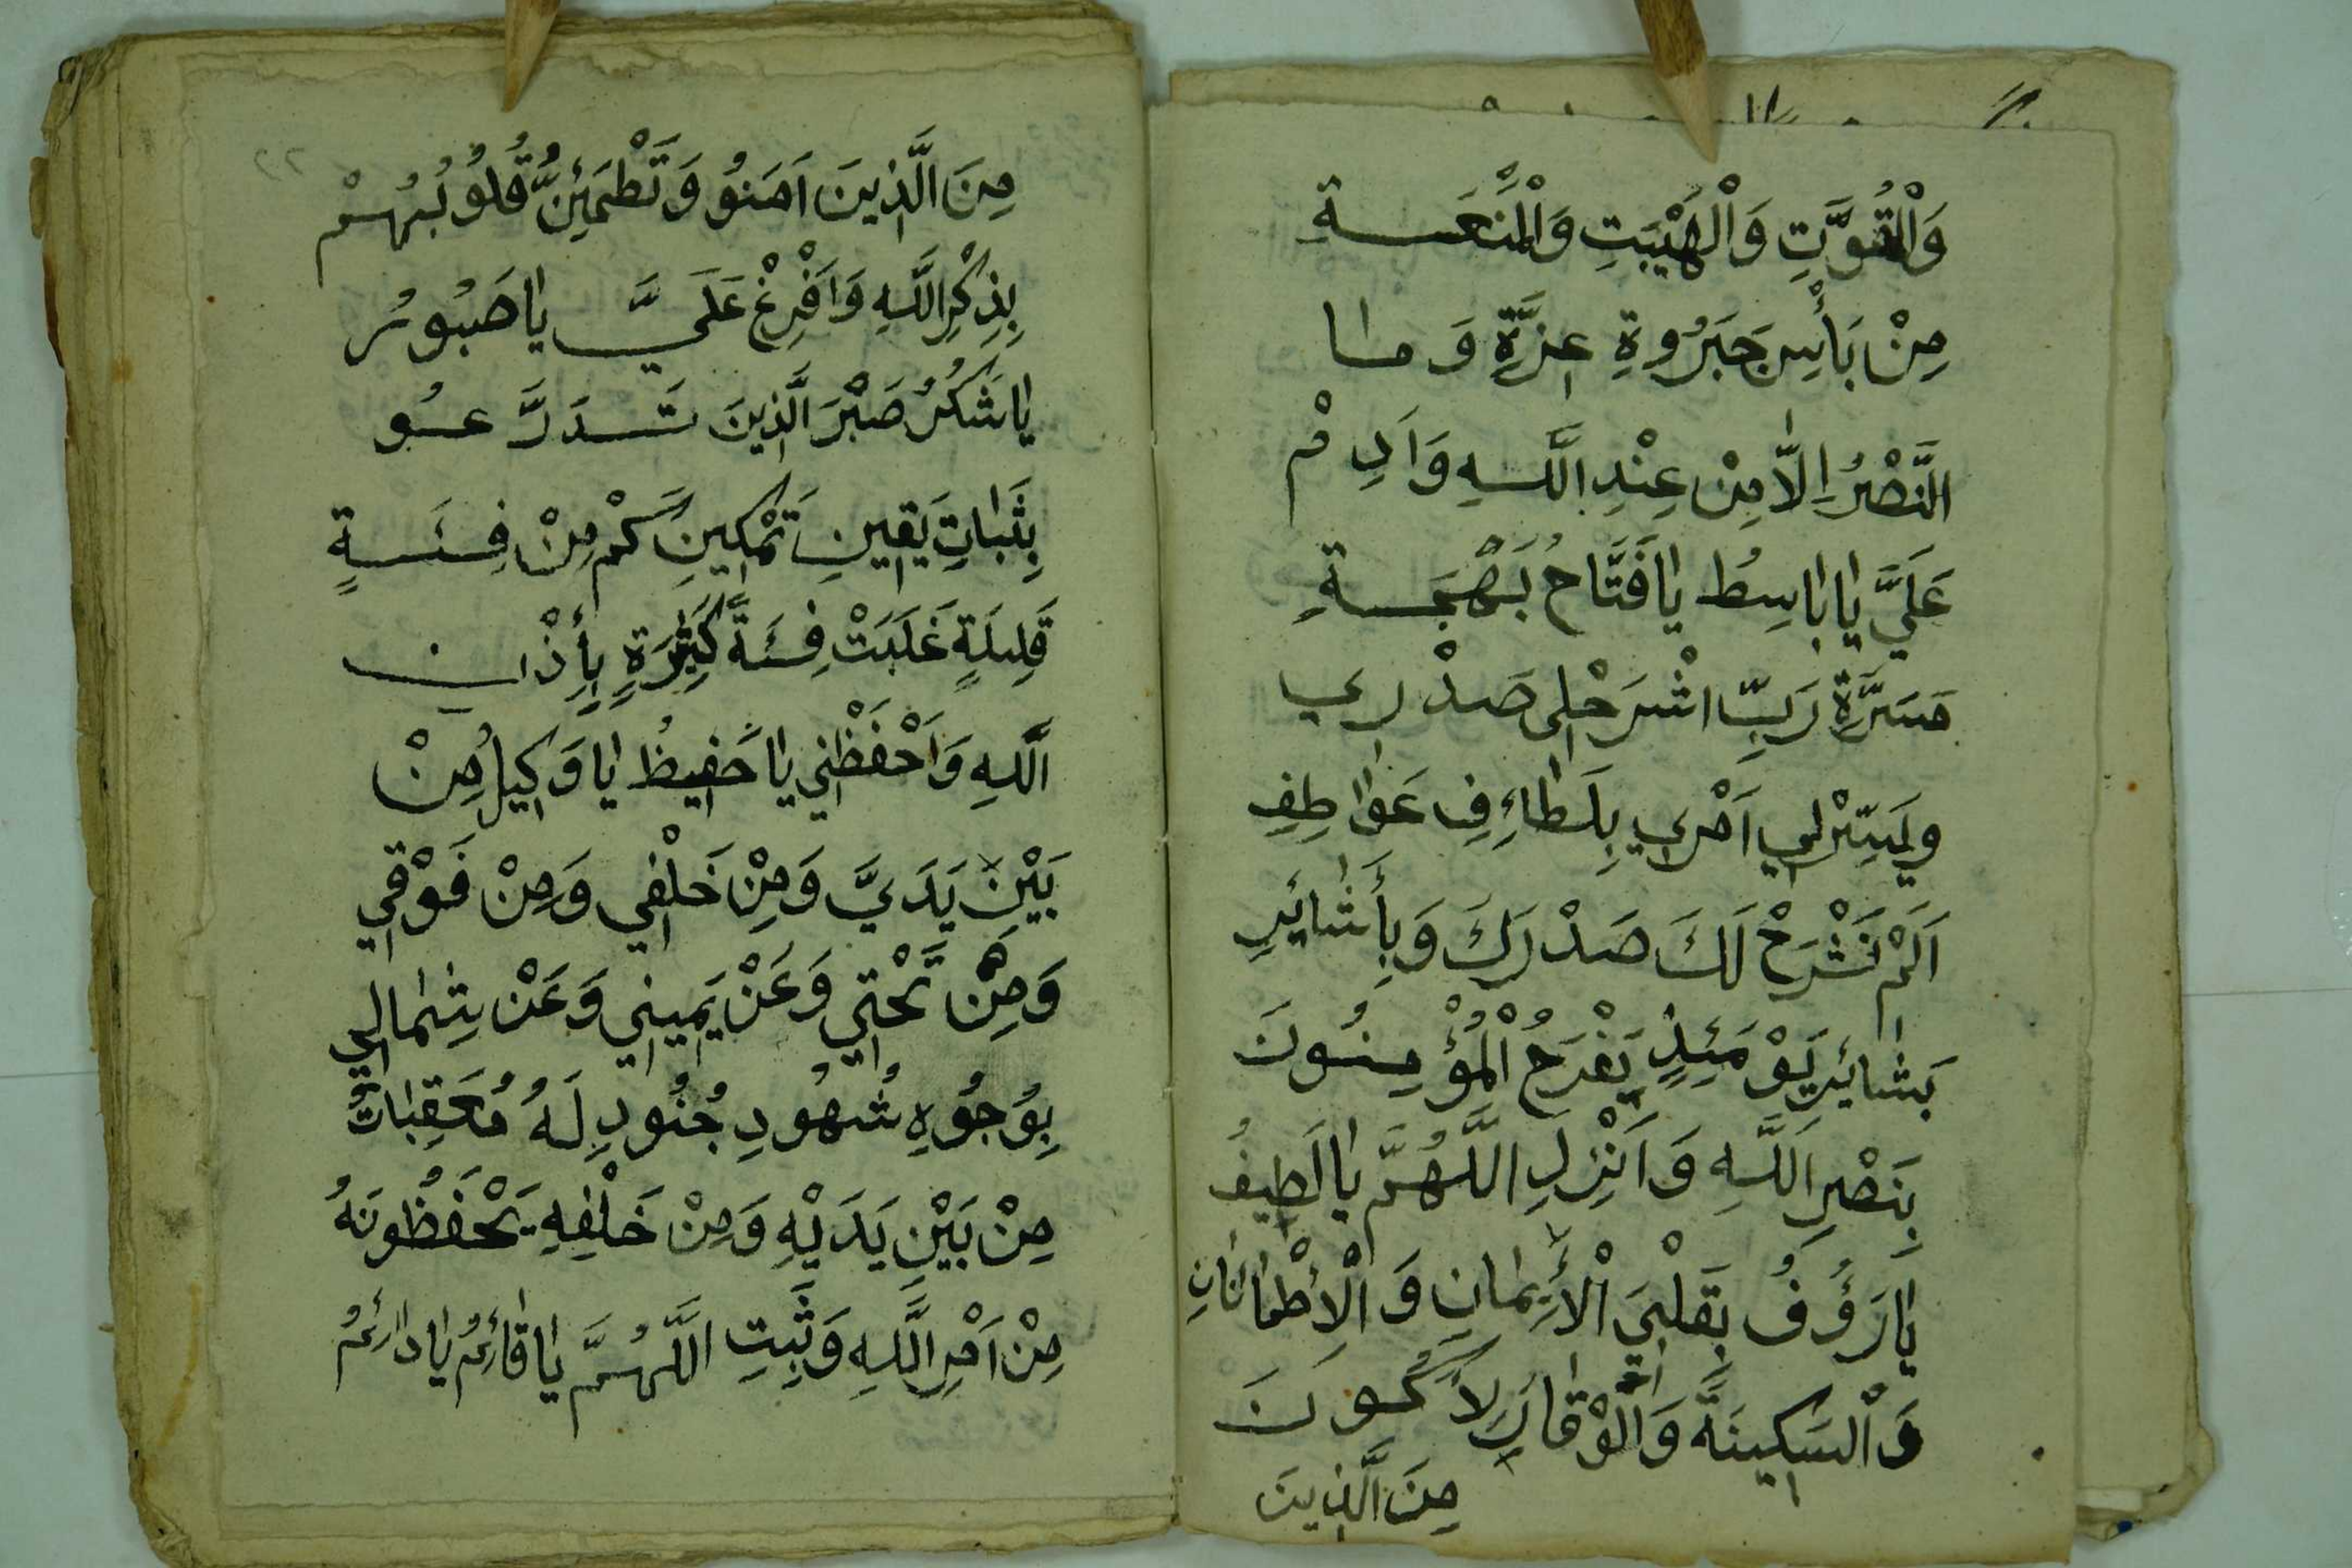 وَالْقُوَّتِ وَالْهَيْبَتِ وَالْمَنَعَةِ
مِنْ بَأْسِ جَبَرُوةِ عِزَّةِ وَمَا
النَّصْرُ اِلَّا مِنْ عِنْدِ اللَّهِ وَاَدِمْ
عَلَيَّ يَا بَاسِطُ يَا فَتَّاحُ بَهْجَةِ
مَسَرَّةِ رَبِّ اشْرَحْلِى صَدْرِي
وَيَسِّرْلِي اَمْرِي بِلَطَاءِفِ عَوَاطِفِ
اَلَمْ نَشْرَحْ لَكَ صَدْرَكَ وَبِأَشَائِرِ
بَشَائِرِ يَوْمَئِذٍ يَفْرَحُ الْمُؤْمِنُونَ
بِنَصْرِ اللَّهِ وَاَنْزِلِ اللَّهُمَّ يَا لَطِيفُ
يَا رَؤُفُ بِقَلْبِيَ الْأِيمَانِ وَالْاِطْمَانَانِ
وَالسَكِينَةَ وَالْوَقَارِ لِاَكُونَ
مِنَ الَّذِينَ
٢٢
مِنَ الَّذِينَ اَمَنُو وَتَطْمَئِنُّ قُلُوبُهُمْ
بِذِكْرِ اللَّهِ وَاَفْرِغْ عَلَيَّ يَا صَبُورُ
يَا شَكُرُ صَبْرَ الَّذِينَ تَدَرَّعُو
بِثَبَاتِ يَقِينِ تَمْكِينِ كَمْ مِنْ فِئَةٍ
قَلِيلَةٍ غَلَبَتْ فِئَةً كَثِيرَةٍ بِأِذْنِ
اللَّهِ وَاَحْفَظْنِي يَا حَفِيظُ يَا وَكِيلُ مِنْ
بَيْنِ يَدَيَّ وَمِنْ خَلْفِي وَمِنْ فَوْقِي
وَمِنْ تَحْتِي وَعَنْ يَمِينِي وَعَنْ شِمَالِي
بِوُجُوهِ شُهُودِ جُنُودِ لَهُ مُعَقِبَاتٌ
مِنْ بَيْنِ يَدَيْهِ وَمِنْ خَلْفِهِ يَحْفَظُونَهُ
مِنْ اَمْرِ اللَّهِ وَثَبِتِ اللَّهُمَّ يَا قَائِمُ يَا دَائِمُ